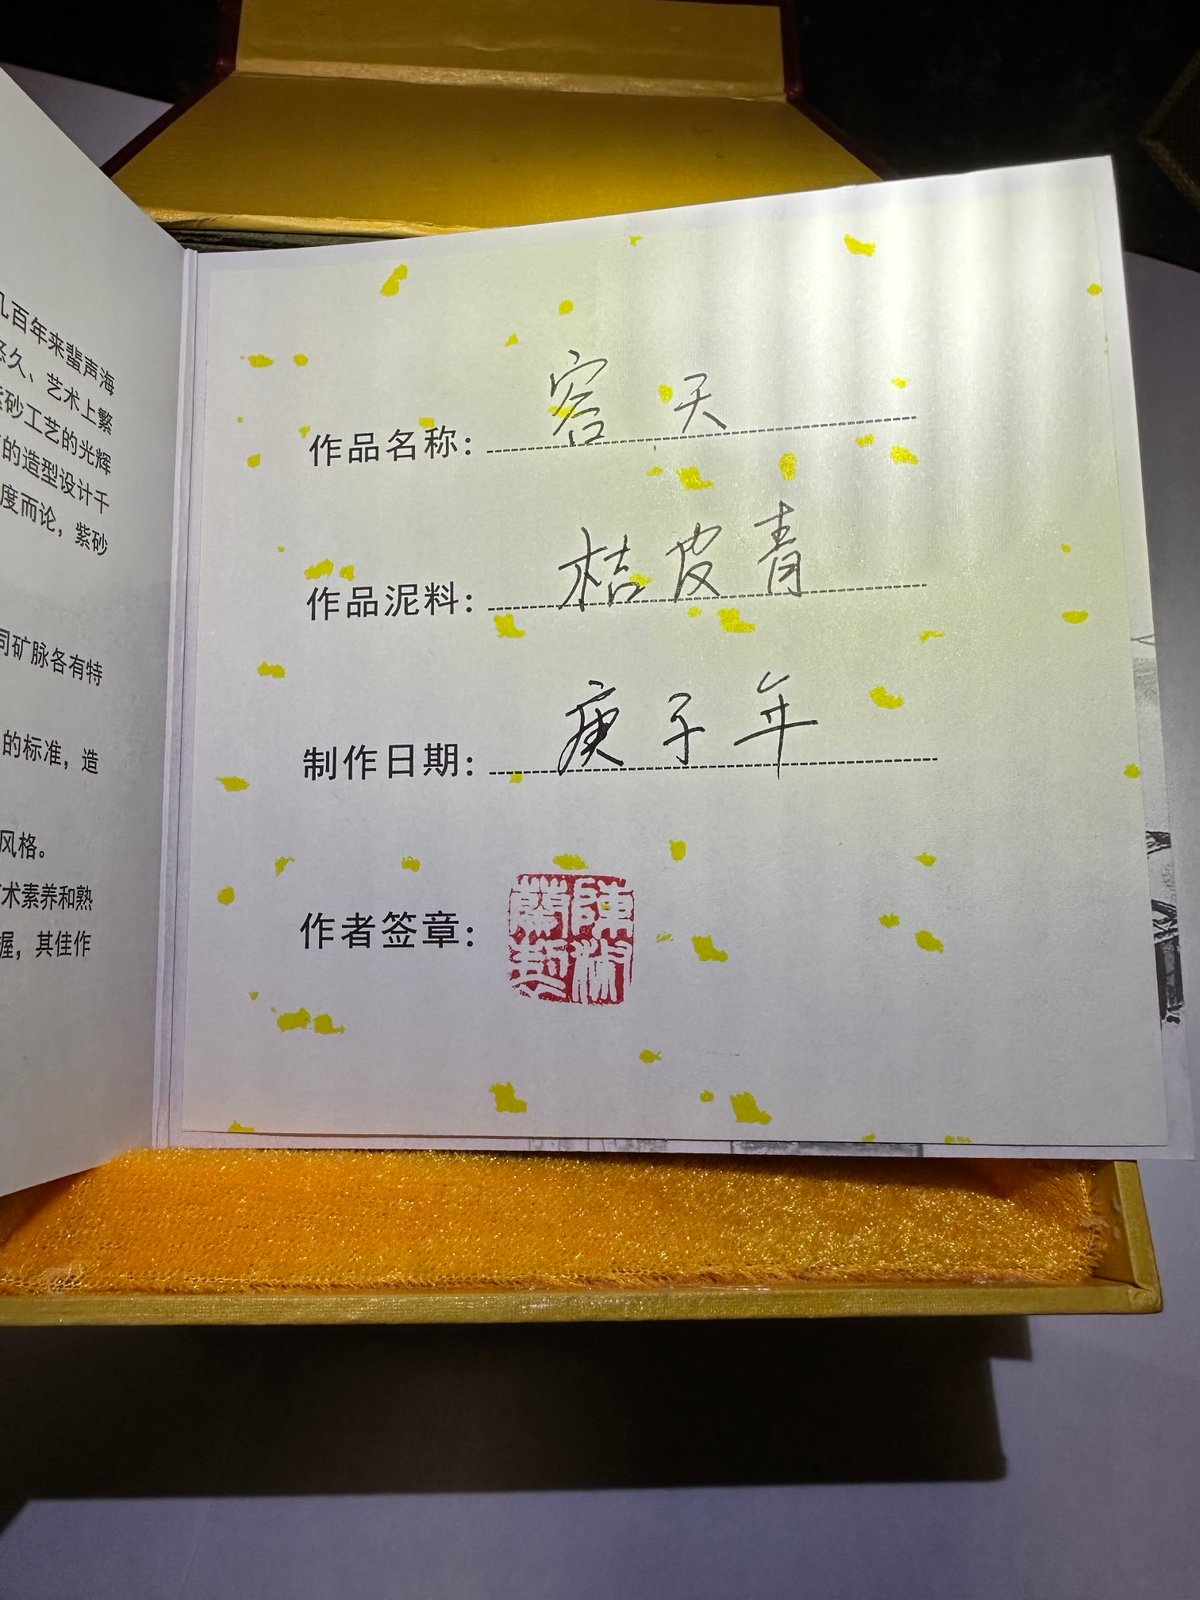 几百年来蜚声海
悠久、艺术上繁
紫砂工艺的光辉
的造型设计千
度而论，紫砂
同矿脉各有特
的标准，造
风格。
术素养和熟
握，其佳作
作品名称：容天
作品泥料：桔皮青
制作日期：庚子年
作者签章：